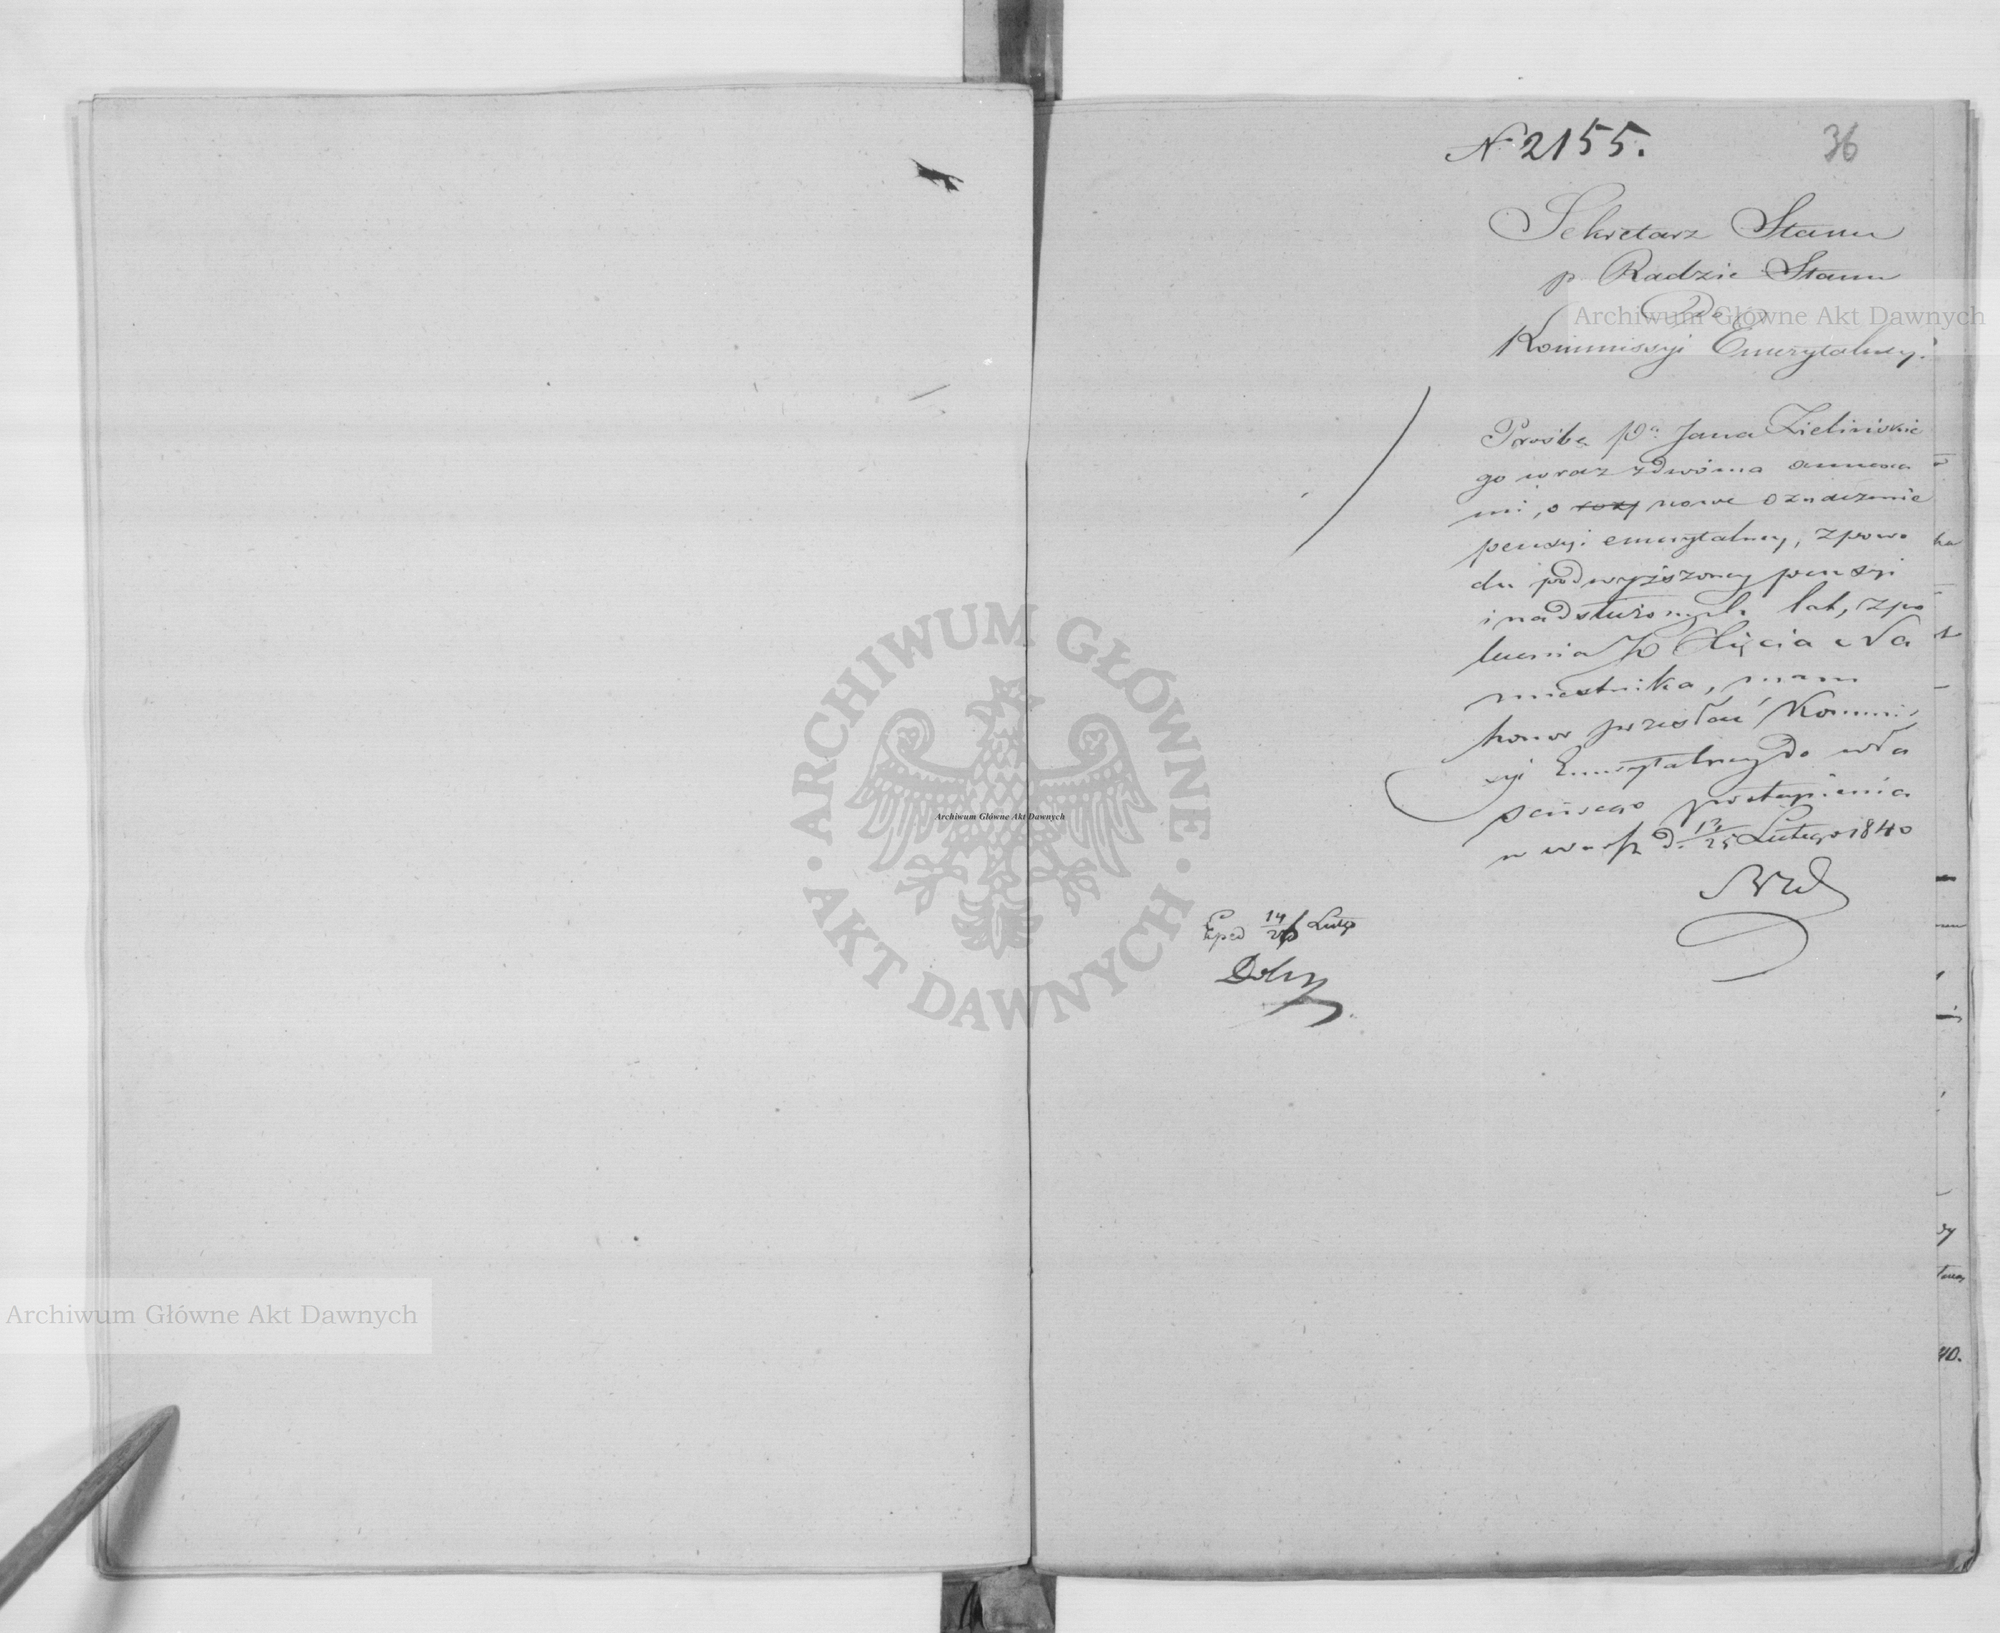 N. 2155.
36
Sekretarz Stanu
p Radzie Stanu
Do
Kommissyi Emerytalney.
Prośbę Pa. Jana Zielińskie
go wraz zdwóma annexa
mi, o nowe oznaczenie
pensyi emerytalney, zpowo
du podwyższoney pensyi
i nadsłużonych lat, zpo
lecenia JO Xięcia Na
miestnika, mam
honor przesłać Kommi
syi Emerytalney do wła
sciwego postąpienia
w Warsz d. 13/25 Lutego 1840
Exped 14/26 Luteg
ARCHIWUM GŁÓWNE
AKT DAWNYCH
Archiwum Główne Akt Dawnych
Archiwum Główne Akt Dawnych
Archiwum Główne Akt Dawnych
40.